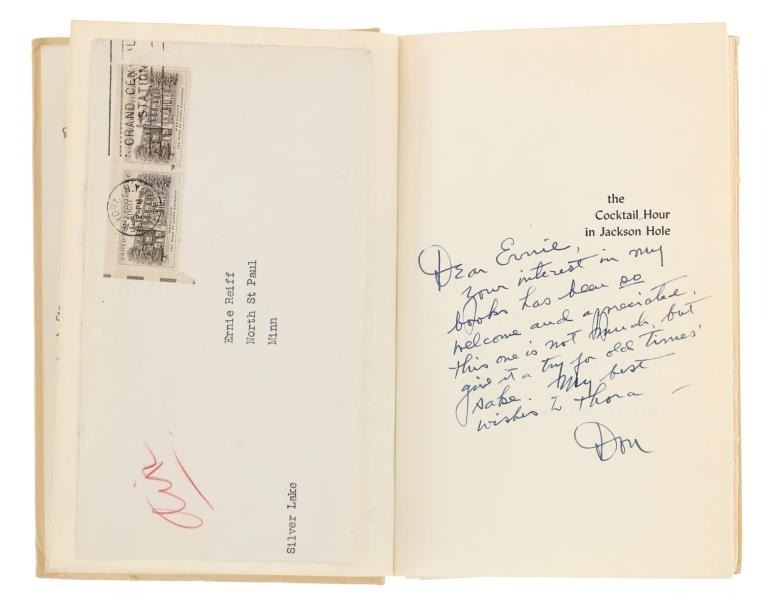 GRAND CEN
STATION
N.Y.
Ernie Reiff
North St Paul
Minn
Silver Lake
the
Cocktail Hour
in Jackson Hole
Dear Ernie,
Your interest in my
books has been so
welcome and appreciated.
This one is not much, but
give it a try for old times'
sake. My best
wishes to Thora —
Don